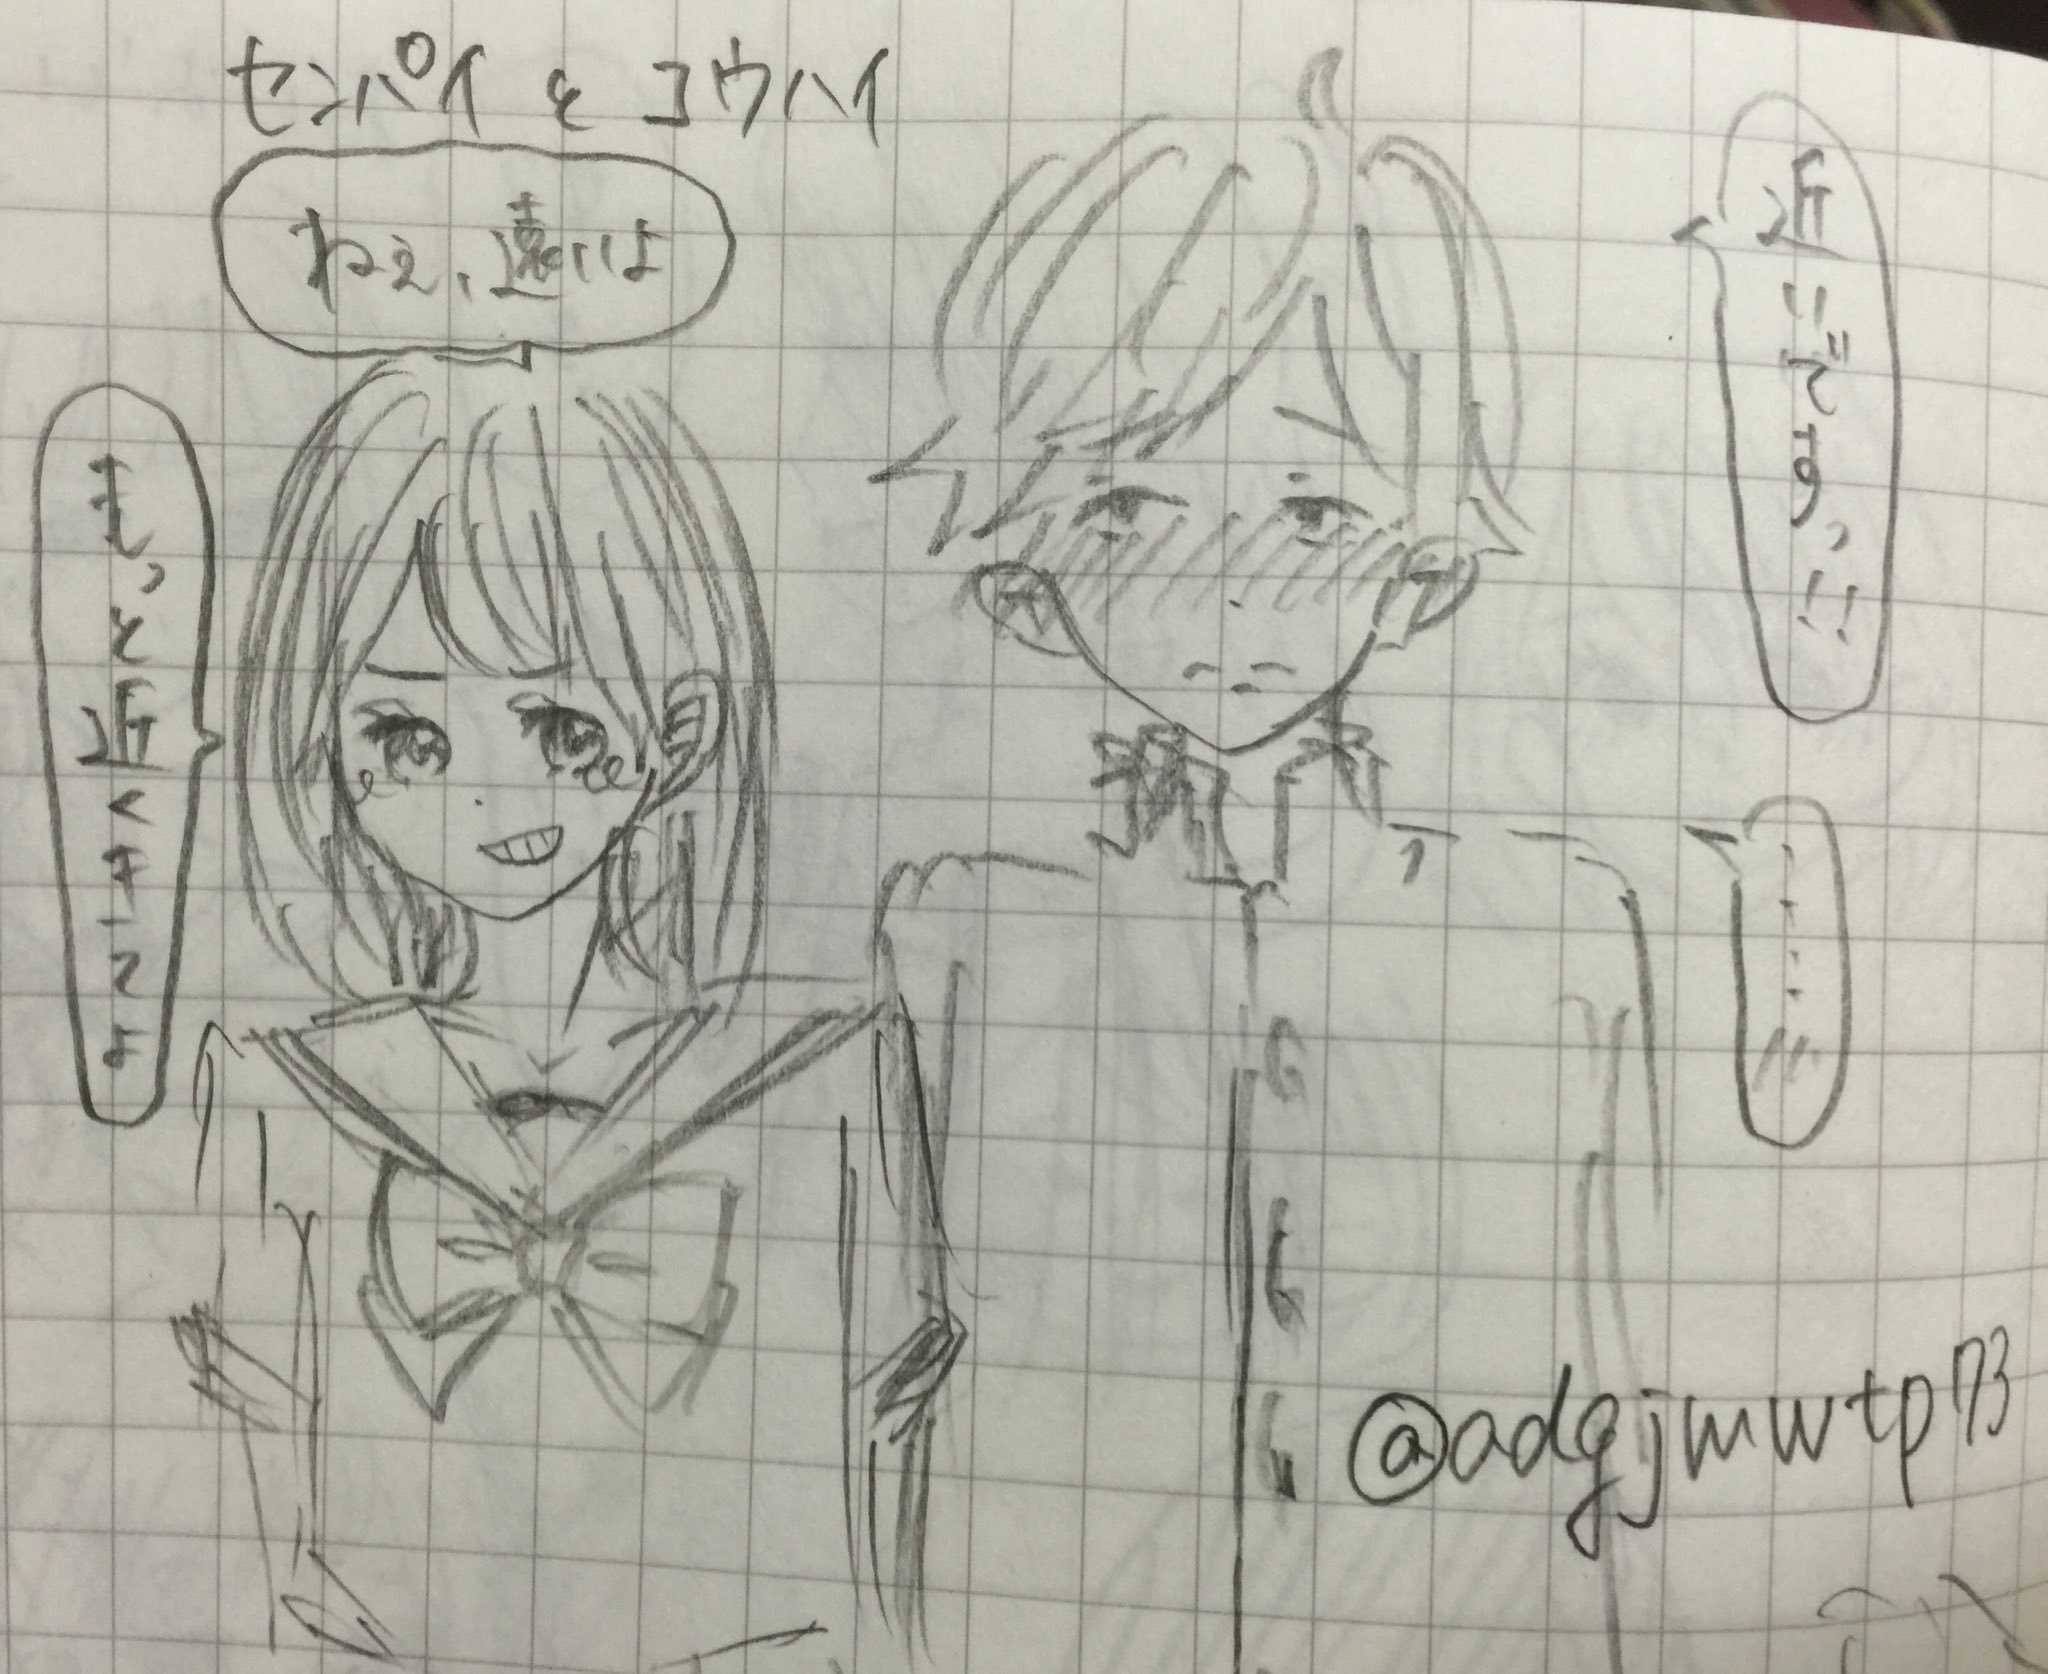 センパイとコウハイ
ねぇ、遠いよ
もっと近くナニしてよ
近いですっ!!
・・・・・
@adgjmwtp73